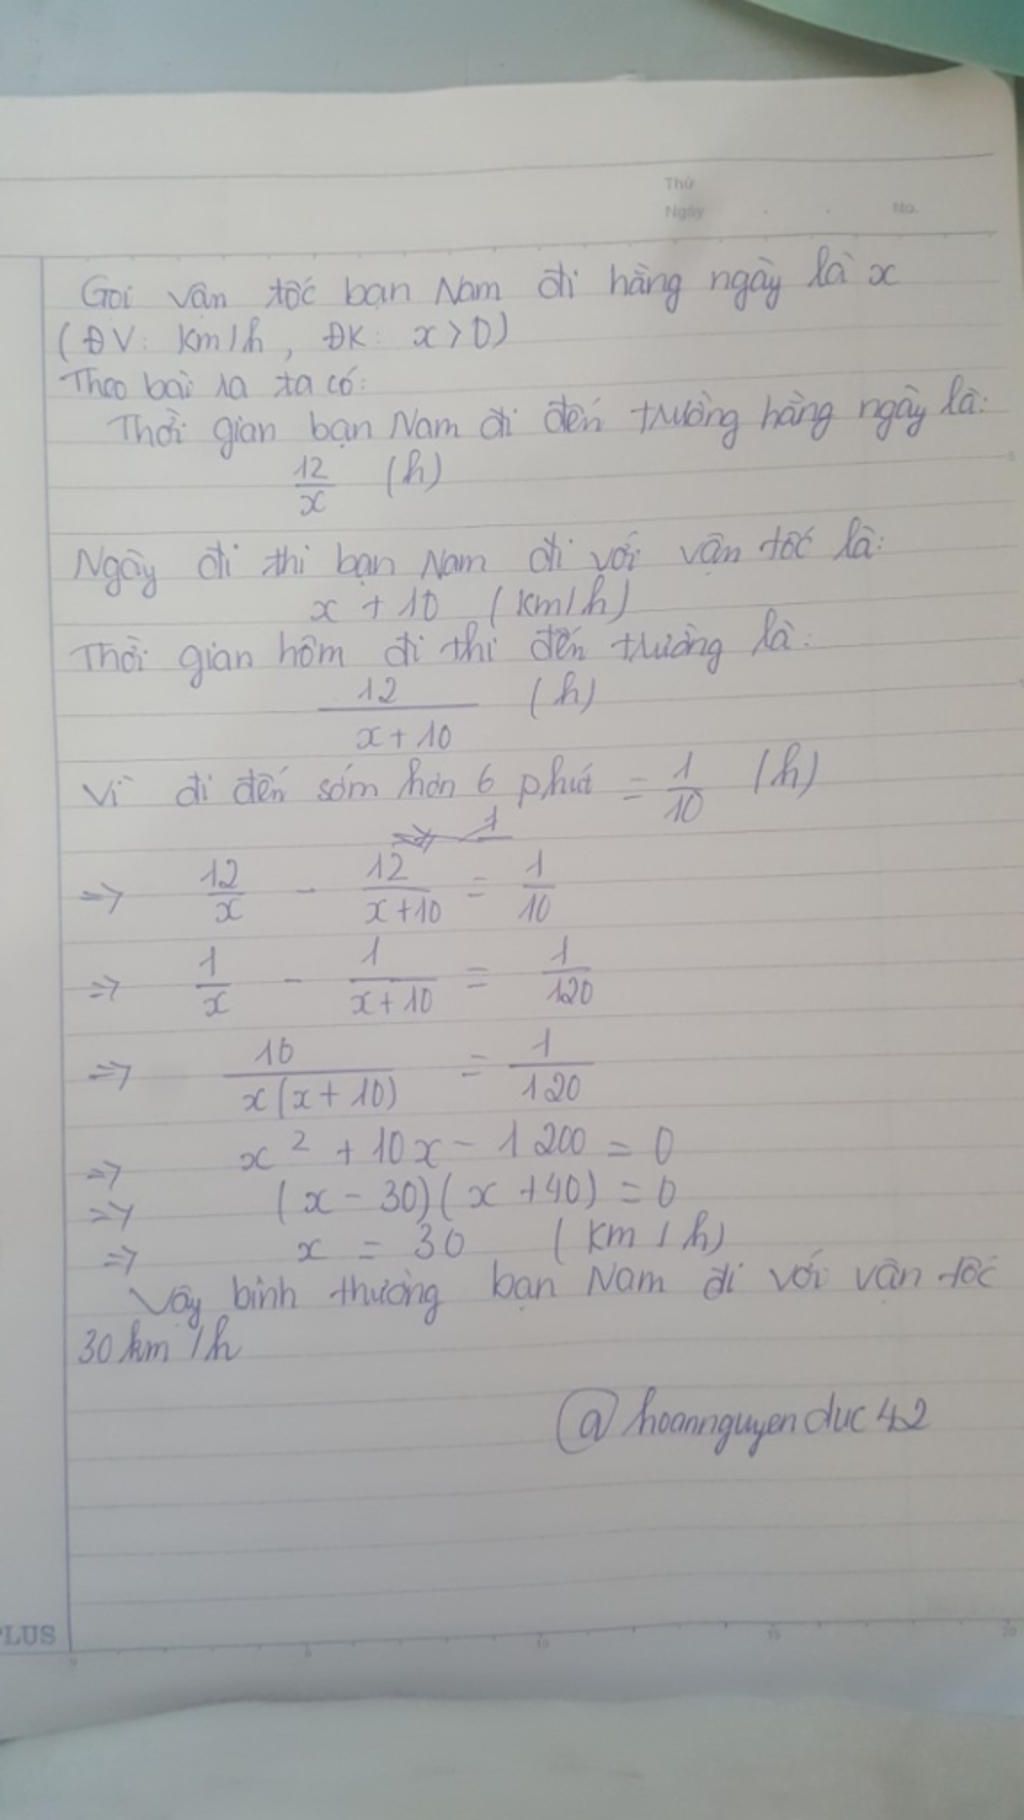 Thứ
Ngày . . No.
Gọi vận tốc bạn Nam đi hằng ngày là x
(ĐV: km/h, ĐK: x>0)
Theo bài ra ta có:
Thời gian bạn Nam đi đến trường hằng ngày là:
12/x (h)
Ngày đi thi bạn Nam đi với vận tốc là:
x + 10 (km/h)
Thời gian hôm đi thi đến trường là:
12/(x+10) (h)
Vì đi đến sớm hơn 6 phút = 1/10 (h)
=> 12/x - 12/(x+10) = 1/10
=> 1/x - 1/(x+10) = 1/120
=> 10/(x(x+10)) = 1/120
=> x² + 10x - 1200 = 0
=> (x - 30)(x + 40) = 0
=> x = 30 (km/h)
Vậy bình thường bạn Nam đi với vận tốc
30 km/h
@hoannguyenduc42
PLUS
0 5 10 15 20